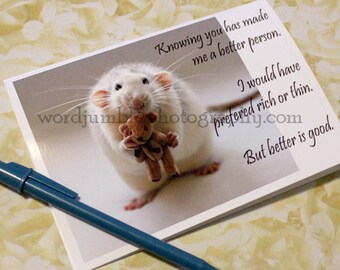 Knowing you has made
me a better person.
I would have
preferred rich or thin.
But better is good.
wordjumblephotography.com